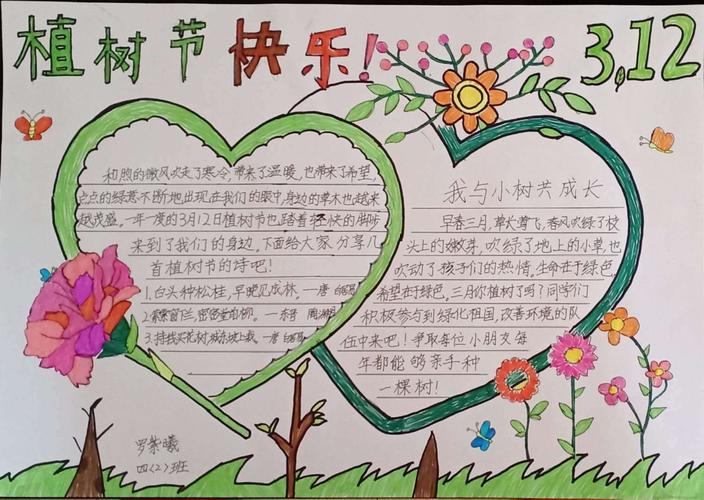 植树节快乐!
3.12
和煦的微风吹走了寒冷,带来了温暖,也带来了希望,
点点的绿意不断地出现在我们的眼中,身边的草木也越来
越茂盛。一年一度的3月12日植树节也踏着轻快的脚步
来到了我们的身边,下面给大家分享几
首植树节的诗吧!
1.白头种松桂,早晚见成林。—唐 白居易
2.
3.持钱买花树,城东坡上栽。—唐 白居易
我与小树共成长
早春三月,草长莺飞,春风吹绿了枝
头上的嫩芽,吹绿了地上的小草,也
吹动了孩子们的热情,生命在于绿色
希望在于绿色,三月你植树了吗?同学们
积极参与到绿化祖国,改善环境的队
伍中来吧!争取每位小朋友每
年都能够亲手种
一棵树!
罗紫曦
四(2)班